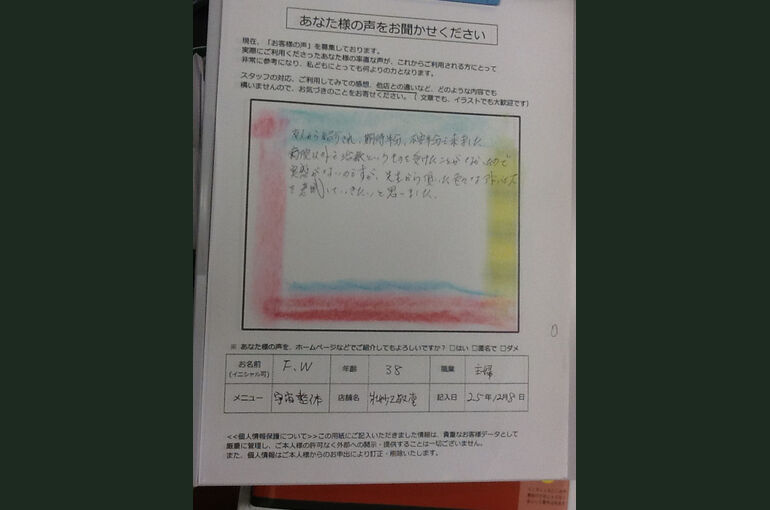 あなた様の声をお聞かせください
現在、「お客様の声」を募集しております。
実際にご利用くださったあなた様の率直な声が、これからご利用される方にとって
非常に参考になり、私どもにとっても何よりの力となります。
スタッフの対応、ご利用してみての感想、他店との違いなど、どのような内容でも
構いませんので、お気づきのことをお寄せください。（文章でも、イラストでも大歓迎です）
友人から紹介され、期待半分、不安半分で来ました
病院以外で治療というものを受けたことがなかったので
実感がないのですが、先生から頂いた色々なアドバイス
を意識していきたいと思いました。
※ あなた様の声を、ホームページなどでご紹介してもよろしいですか？ □はい □匿名で □ダメ
お名前 (イニシャル可) F.W 年齢 38 職業 主婦
メニュー 宇宙整体 店舗名 記入日 25年12月8日
<<個人情報保護について>>この用紙にご記入いただきました情報は、貴重なお客様データとして
厳重に管理し、ご本人様の許可なく外部への開示・提供することは一切ございません。
また、個人情報はご本人様からのお申出により訂正・削除いたします。